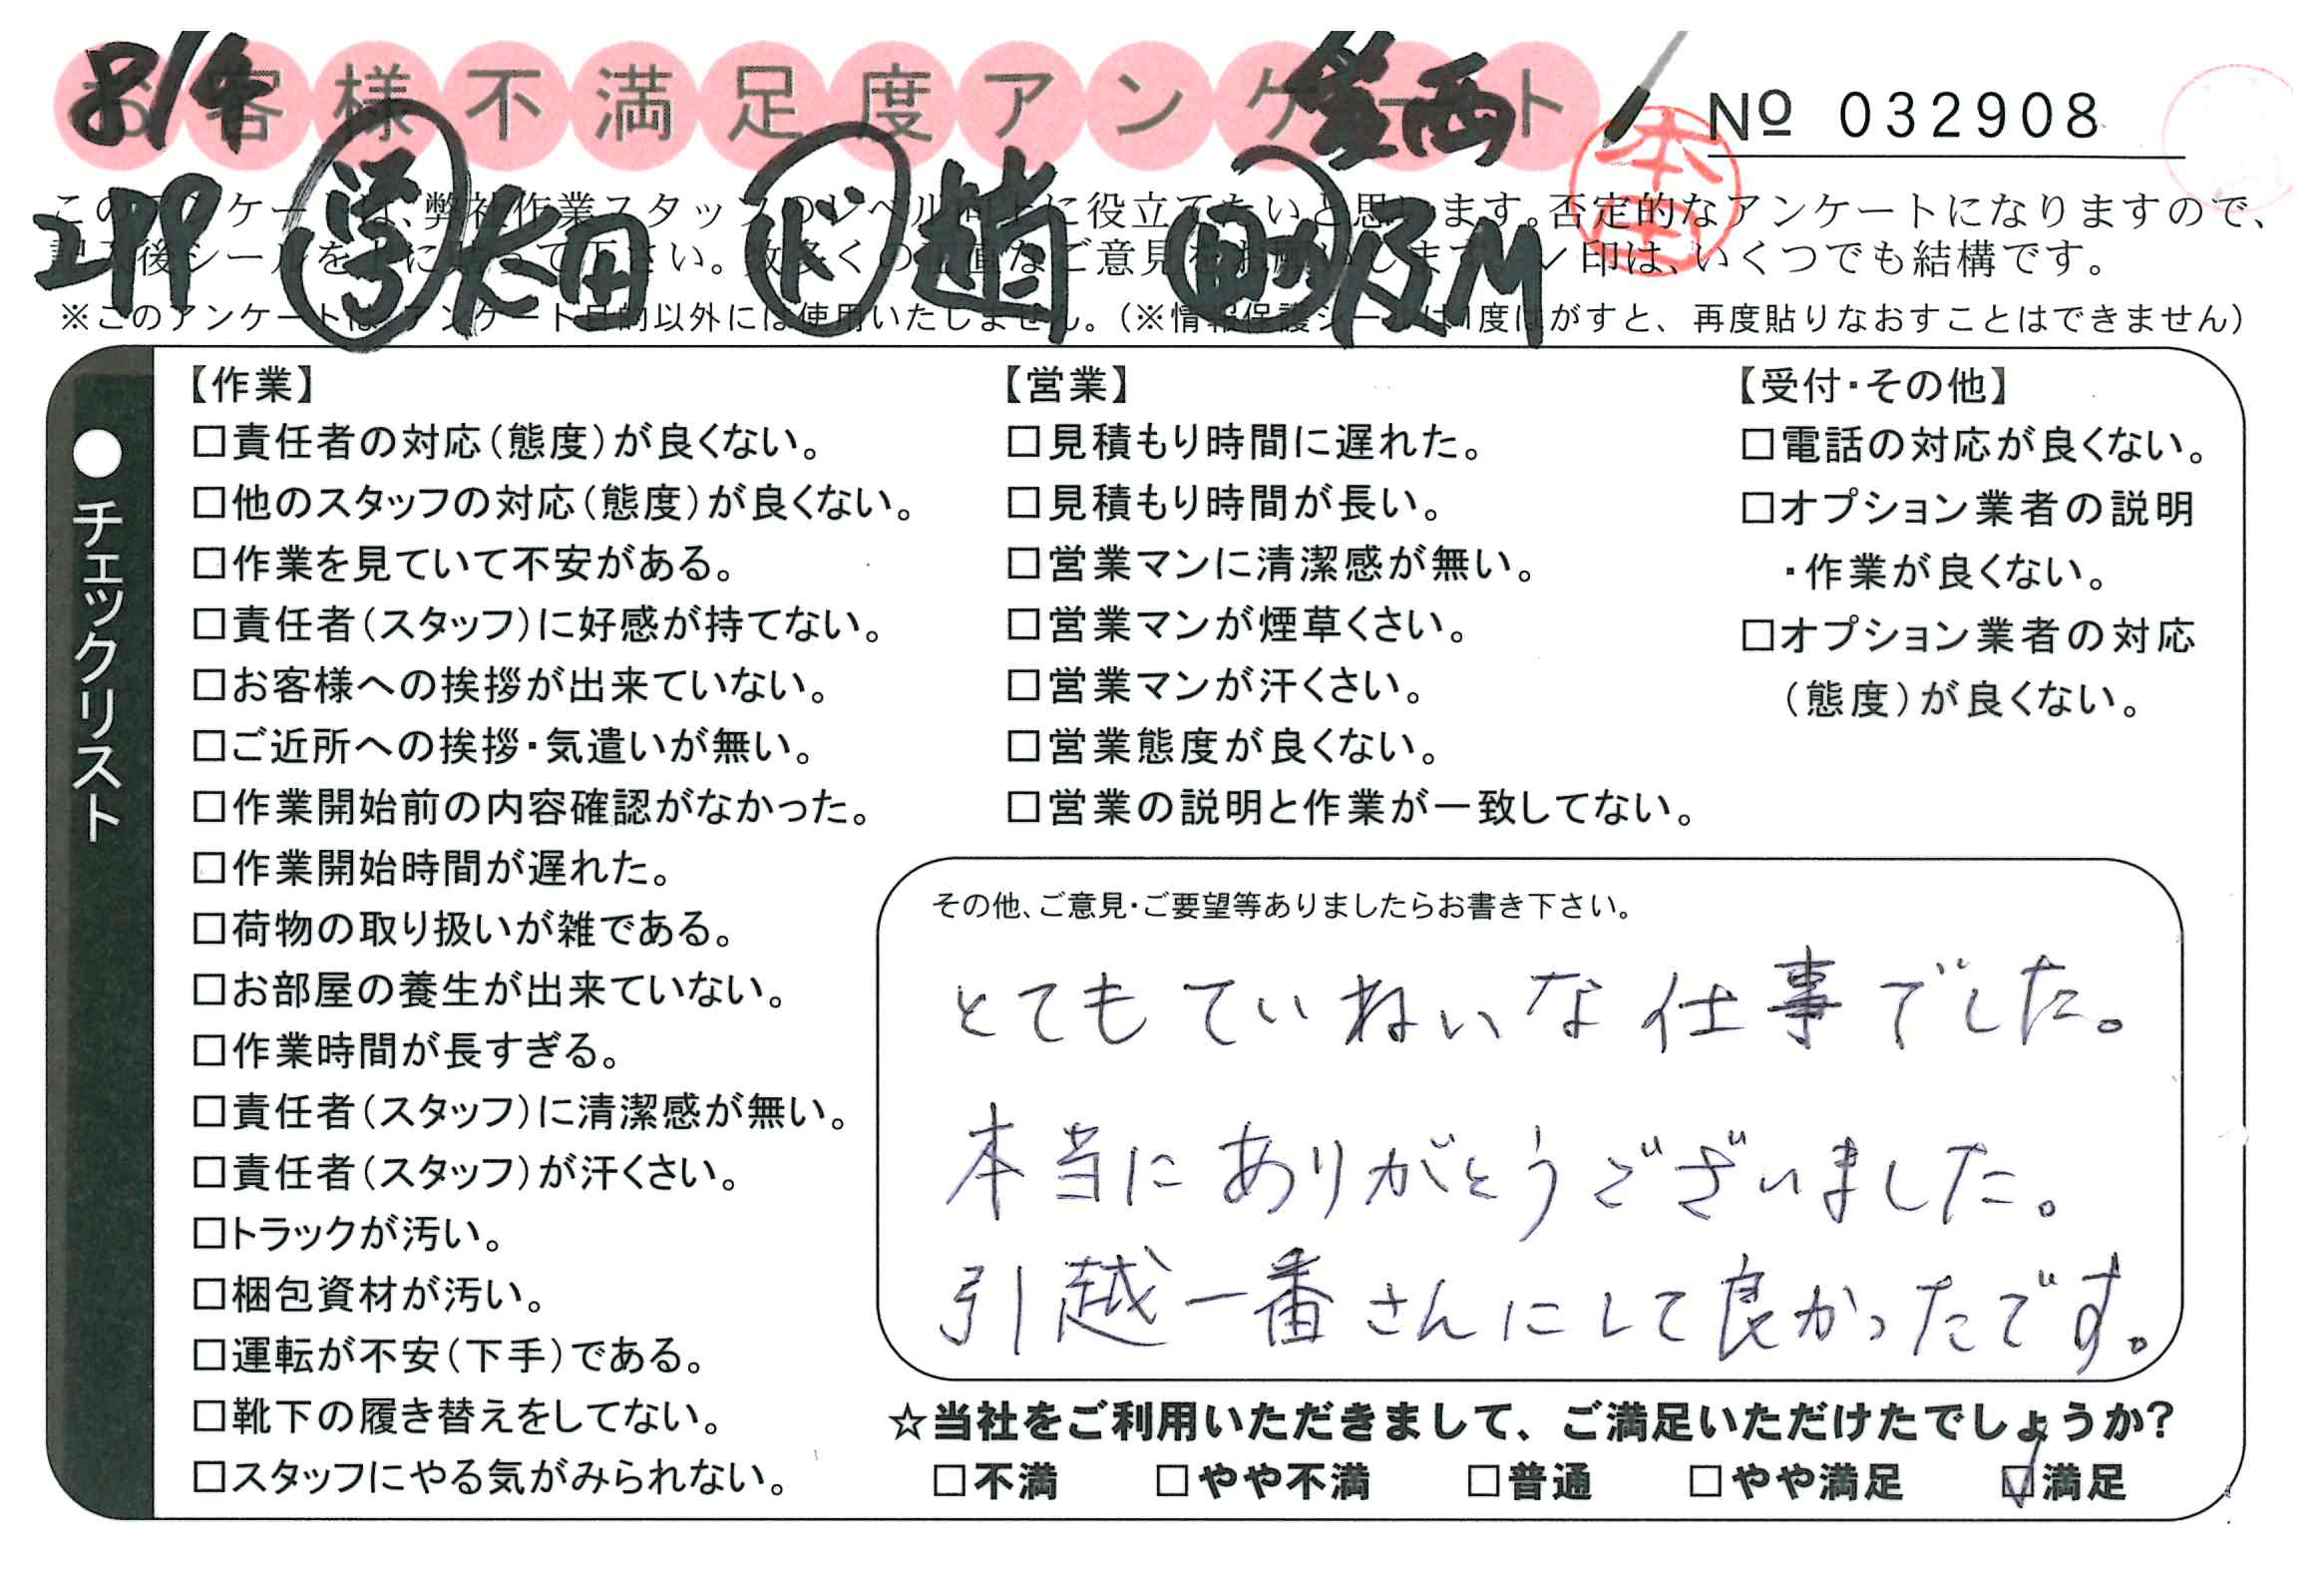 お客様不満足度アンケート
8/4
笠西
No 032908
本田
このアンケートは、弊社作業スタッフのレベル向上に役立てたいと思います。否定的なアンケートになりますので、
記入後シールを上にはって下さい。数多くの正直なご意見をお願いします。レ印は、いくつでも結構です。
太田 ド 趙
※このアンケートは、アンケート目的以外には使用いたしません。(※情報保護シールは1度はがすと、再度貼りなおすことはできません)
●チェックリスト
【作業】
□責任者の対応(態度)が良くない。
□他のスタッフの対応(態度)が良くない。
□作業を見ていて不安がある。
□責任者(スタッフ)に好感が持てない。
□お客様への挨拶が出来ていない。
□ご近所への挨拶・気遣いが無い。
□作業開始前の内容確認がなかった。
□作業開始時間が遅れた。
□荷物の取り扱いが雑である。
□お部屋の養生が出来ていない。
□作業時間が長すぎる。
□責任者(スタッフ)に清潔感が無い。
□責任者(スタッフ)が汗くさい。
□トラックが汚い。
□梱包資材が汚い。
□運転が不安(下手)である。
□靴下の履き替えをしてない。
□スタッフにやる気がみられない。
【営業】
□見積もり時間に遅れた。
□見積もり時間が長い。
□営業マンに清潔感が無い。
□営業マンが煙草くさい。
□営業マンが汗くさい。
□営業態度が良くない。
□営業の説明と作業が一致してない。
【受付・その他】
□電話の対応が良くない。
□オプション業者の説明
・作業が良くない。
□オプション業者の対応
(態度)が良くない。
その他、ご意見・ご要望等ありましたらお書き下さい。
とてもていねいな仕事でした。
本当にありがとうございました。
引越一番さんにして良かったです。
☆当社をご利用いただきまして、ご満足いただけたでしょうか?
□不満 □やや不満 □普通 □やや満足 ☑満足